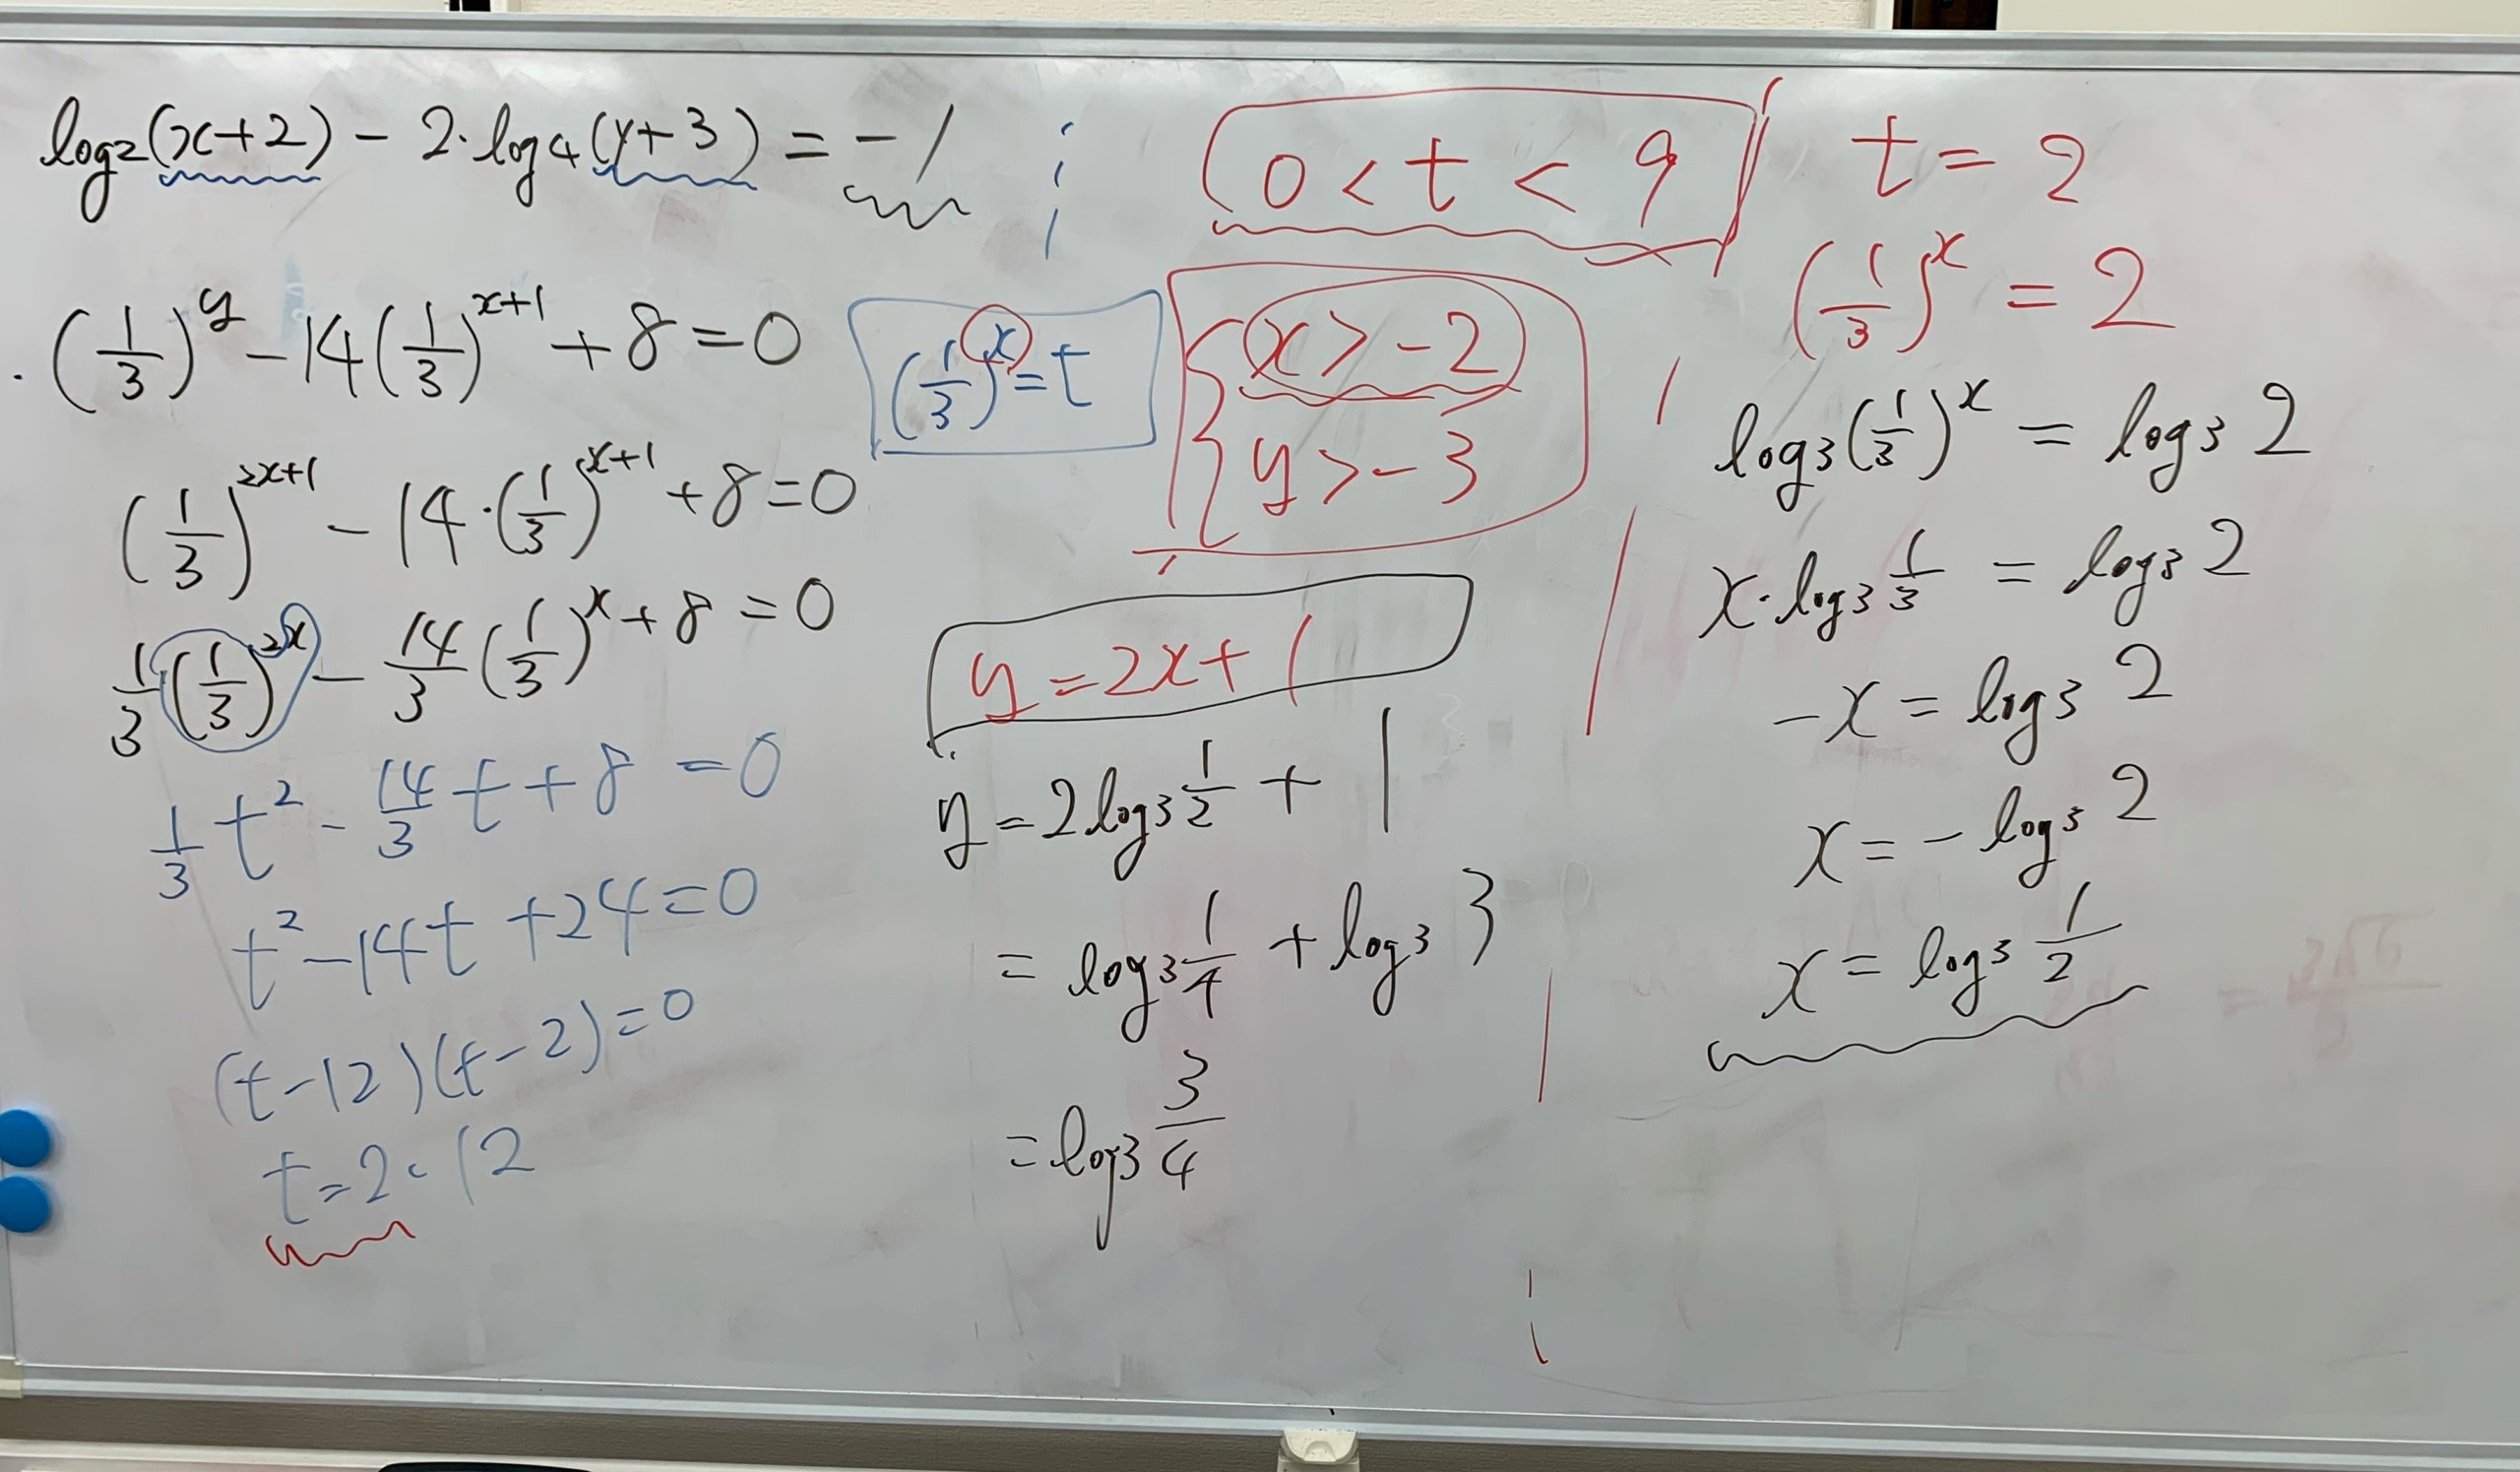 log₂(x+2) - 2·log₄(y+3) = -1
(1/3)^y - 14(1/3)^(x+1) + 8 = 0
(1/3)^(2x+1) - 14·(1/3)^(x+1) + 8 = 0
1/3(1/3)^(2x) - 14/3(1/3)^x + 8 = 0
1/3 t² - 14/3 t + 8 = 0
t² - 14t + 24 = 0
(t-12)(t-2) = 0
t = 2, 12
(1/3)^x = t
0 < t < 9
x > -2
y > -3
y = 2x+1
y = 2log₃ 1/2 + 1
= log₃ 1/4 + log₃ 3
= log₃ 3/4
t = 2
(1/3)^x = 2
log₃(1/3)^x = log₃ 2
x·log₃ 1/3 = log₃ 2
-x = log₃ 2
x = -log₃ 2
x = log₃ 1/2